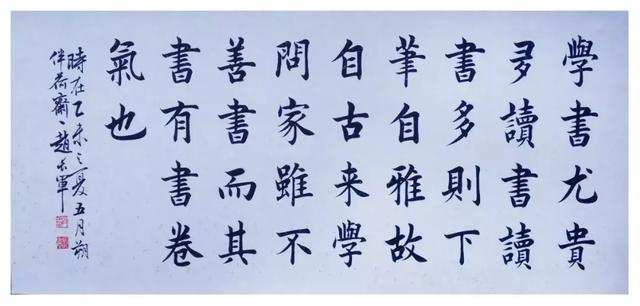 學書尤貴
多讀書讀
書多則下
筆自雅故
自古来學
問家雖不
善書而其
書有書卷
氣也
時在乙未之夏五月朔
伴荷齋趙軍